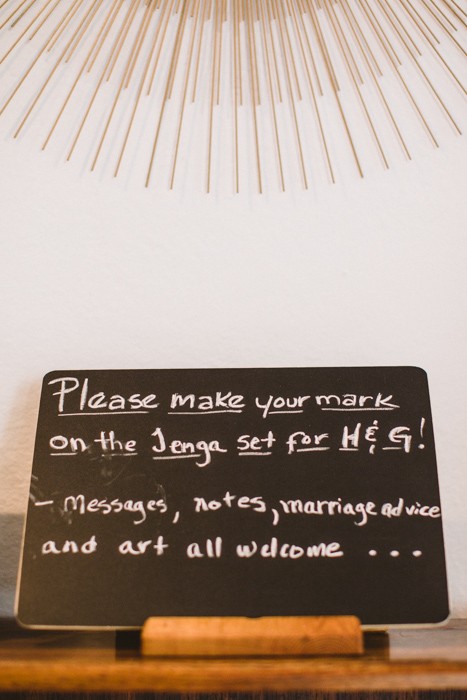 Please make your mark
on the Jenga set for H & G!
- Messages, notes, marriage advice
and art all welcome ...